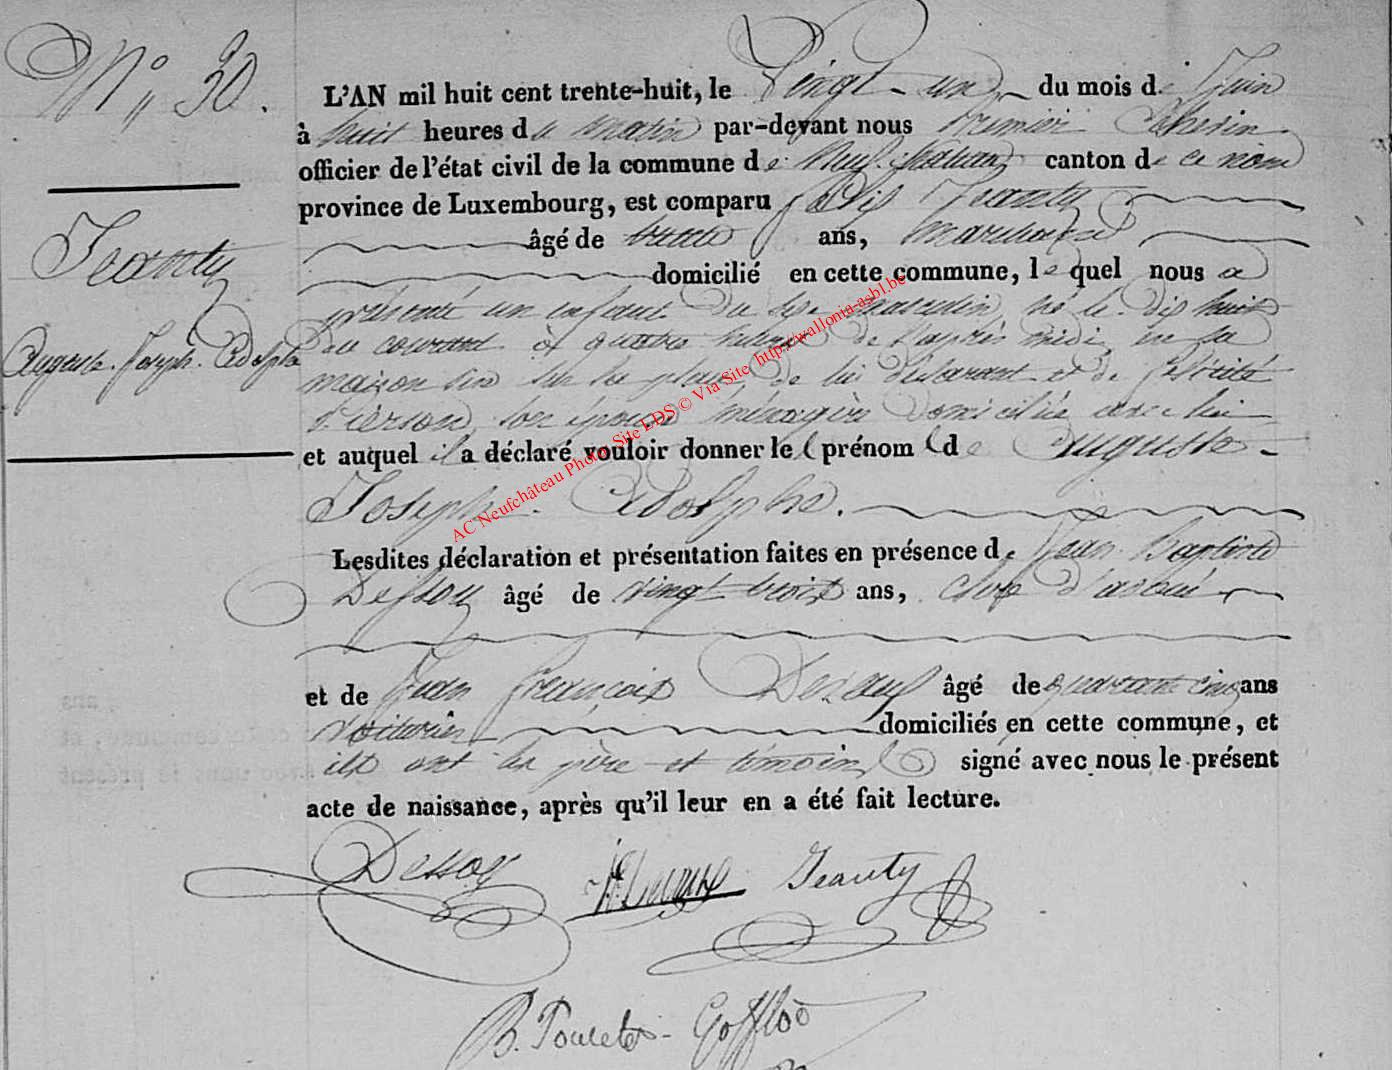 N° 30.
Jeanty
Auguste. Joseph. Adolphe
L'AN mil huit cent trente-huit, le Vingt-un du mois de Juin
à huit heures du matin par-devant nous premier Echevin
officier de l'état civil de la commune de Neufchâteau canton de ce nom
province de Luxembourg, est comparu Jeanty
âgé de trente ans, marchand
domicilié en cette commune, lequel nous a
présenté un enfant du sexe masculin, né le dix huit
du courant à quatre heures de l'après midi, en sa
maison sise sur la place, de lui déclarant et de
Pierson, son épouse ménagère domiciliée avec lui
et auquel il a déclaré vouloir donner les prénoms d'Auguste-
Joseph. Adolphe.
Lesdites déclaration et présentation faites en présence de Jean Baptiste
Dessoy âgé de vingt trois ans, clerc d'avoué
et de Jean François Devaux âgé de quarante cinq ans
voiturier domiciliés en cette commune, et
ils ont les père et témoins signé avec nous le présent
acte de naissance, après qu'il leur en a été fait lecture.
Dessoy Jeanty
AC Neufchâteau Photos Site LDS © Via Site http://wallonia-asbl.be